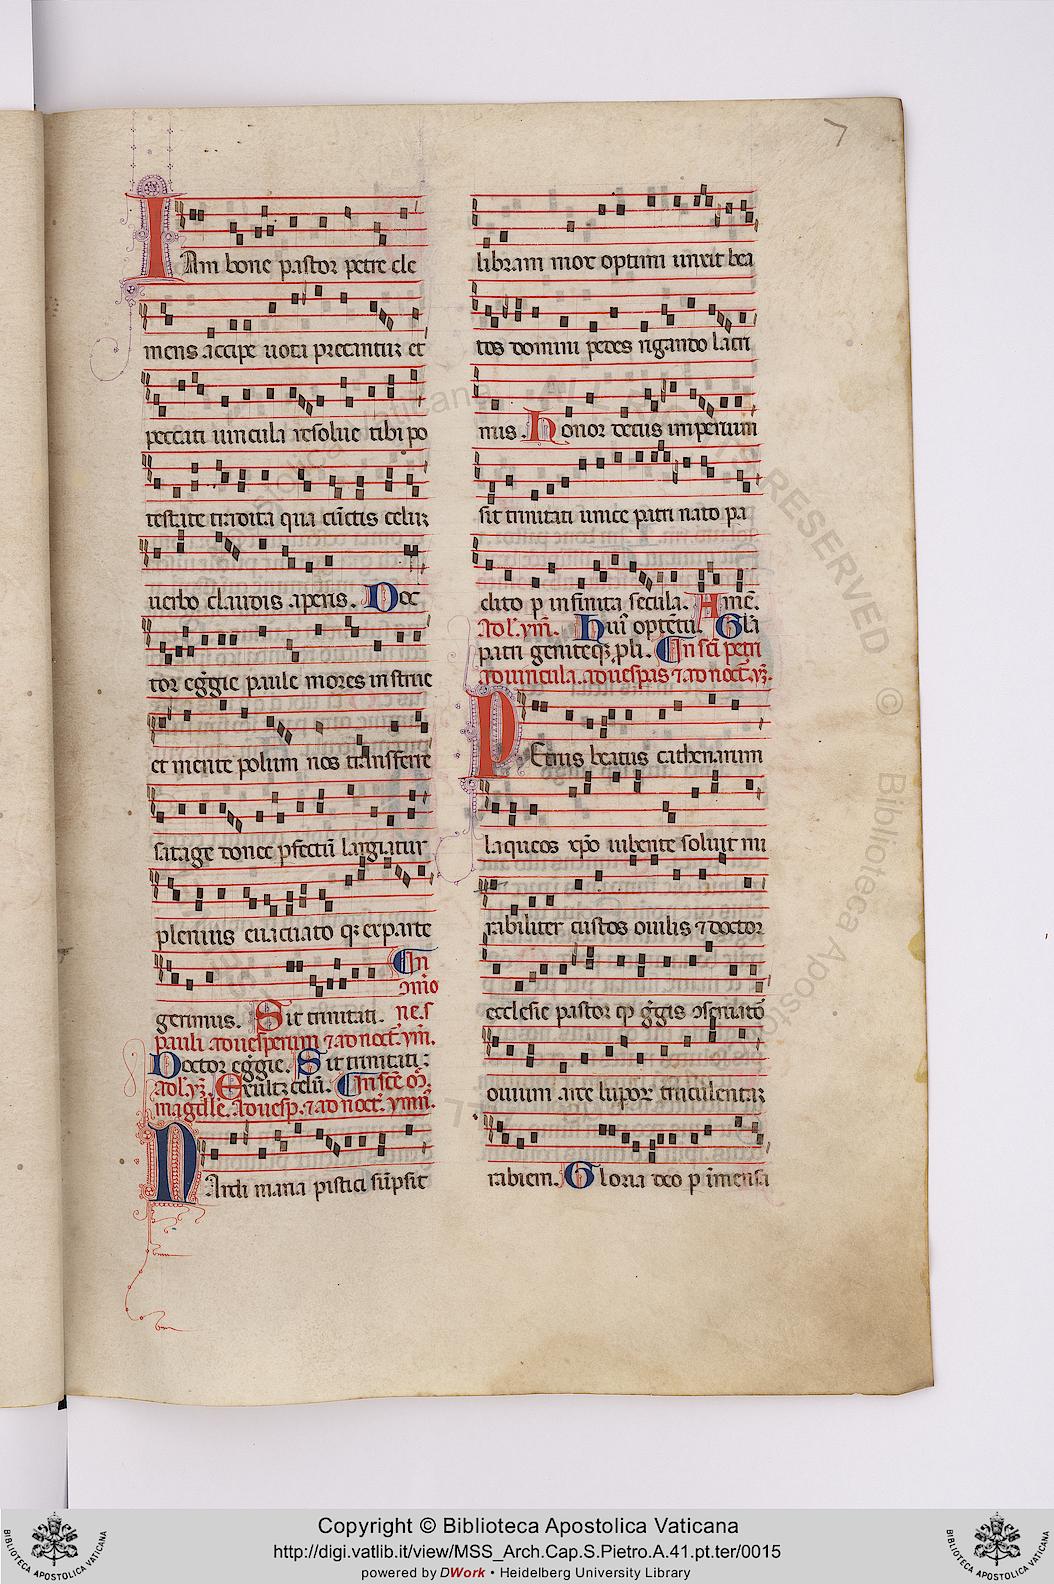 7
IAm bone pastor petre cle
mens accipe uota precantur et
peccati uincula resolue tibi po
testate tradita qua cunctis celum
uerbo claudis aperis. Doc
tor egregie paule mores instrue
et mente polum nos transferre
satage donec pfectum largiatur
plenius euacuato qꝫ ex parte
gerimus. Sit trinitati. In
9mio
ne.s
pauli ad uesperum ⁊ ad noct. ymn.
Doctor egregie. Sit trinitati:
ad l. yꝫ. Exultꝫ celum. In sce m.
magdlle. Ad uesp. ⁊ ad noct. ymn.
NArdi maria pistici sumpsit
libram mox optimi unxit bea
tos domini pedes rigando lacri
mis. Honor decus imperium
sit trinitati unice patri nato pa
clito p infinita secula. Amen.
Ad l. ymn. Huius optentu. Gla
patri geniteqꝫ pli. In sci petri
ad uincula. ad uespas ⁊ ad noct. yꝫ.
PEtrus beatus cathenarum
laqueos xpo iubente soluit mi
rabiliter custos ouilis ⁊ doctor
ecclesie pastor qꝫ gregis 9seruator
ouium arcet lupoꝝ truculentam
rabiem. Gloria deo p imensa
Copyright © Biblioteca Apostolica Vaticana
http://digi.vatlib.it/view/MSS_Arch.Cap.S.Pietro.A.41.pt.ter/0015
powered by DWork • Heidelberg University Library